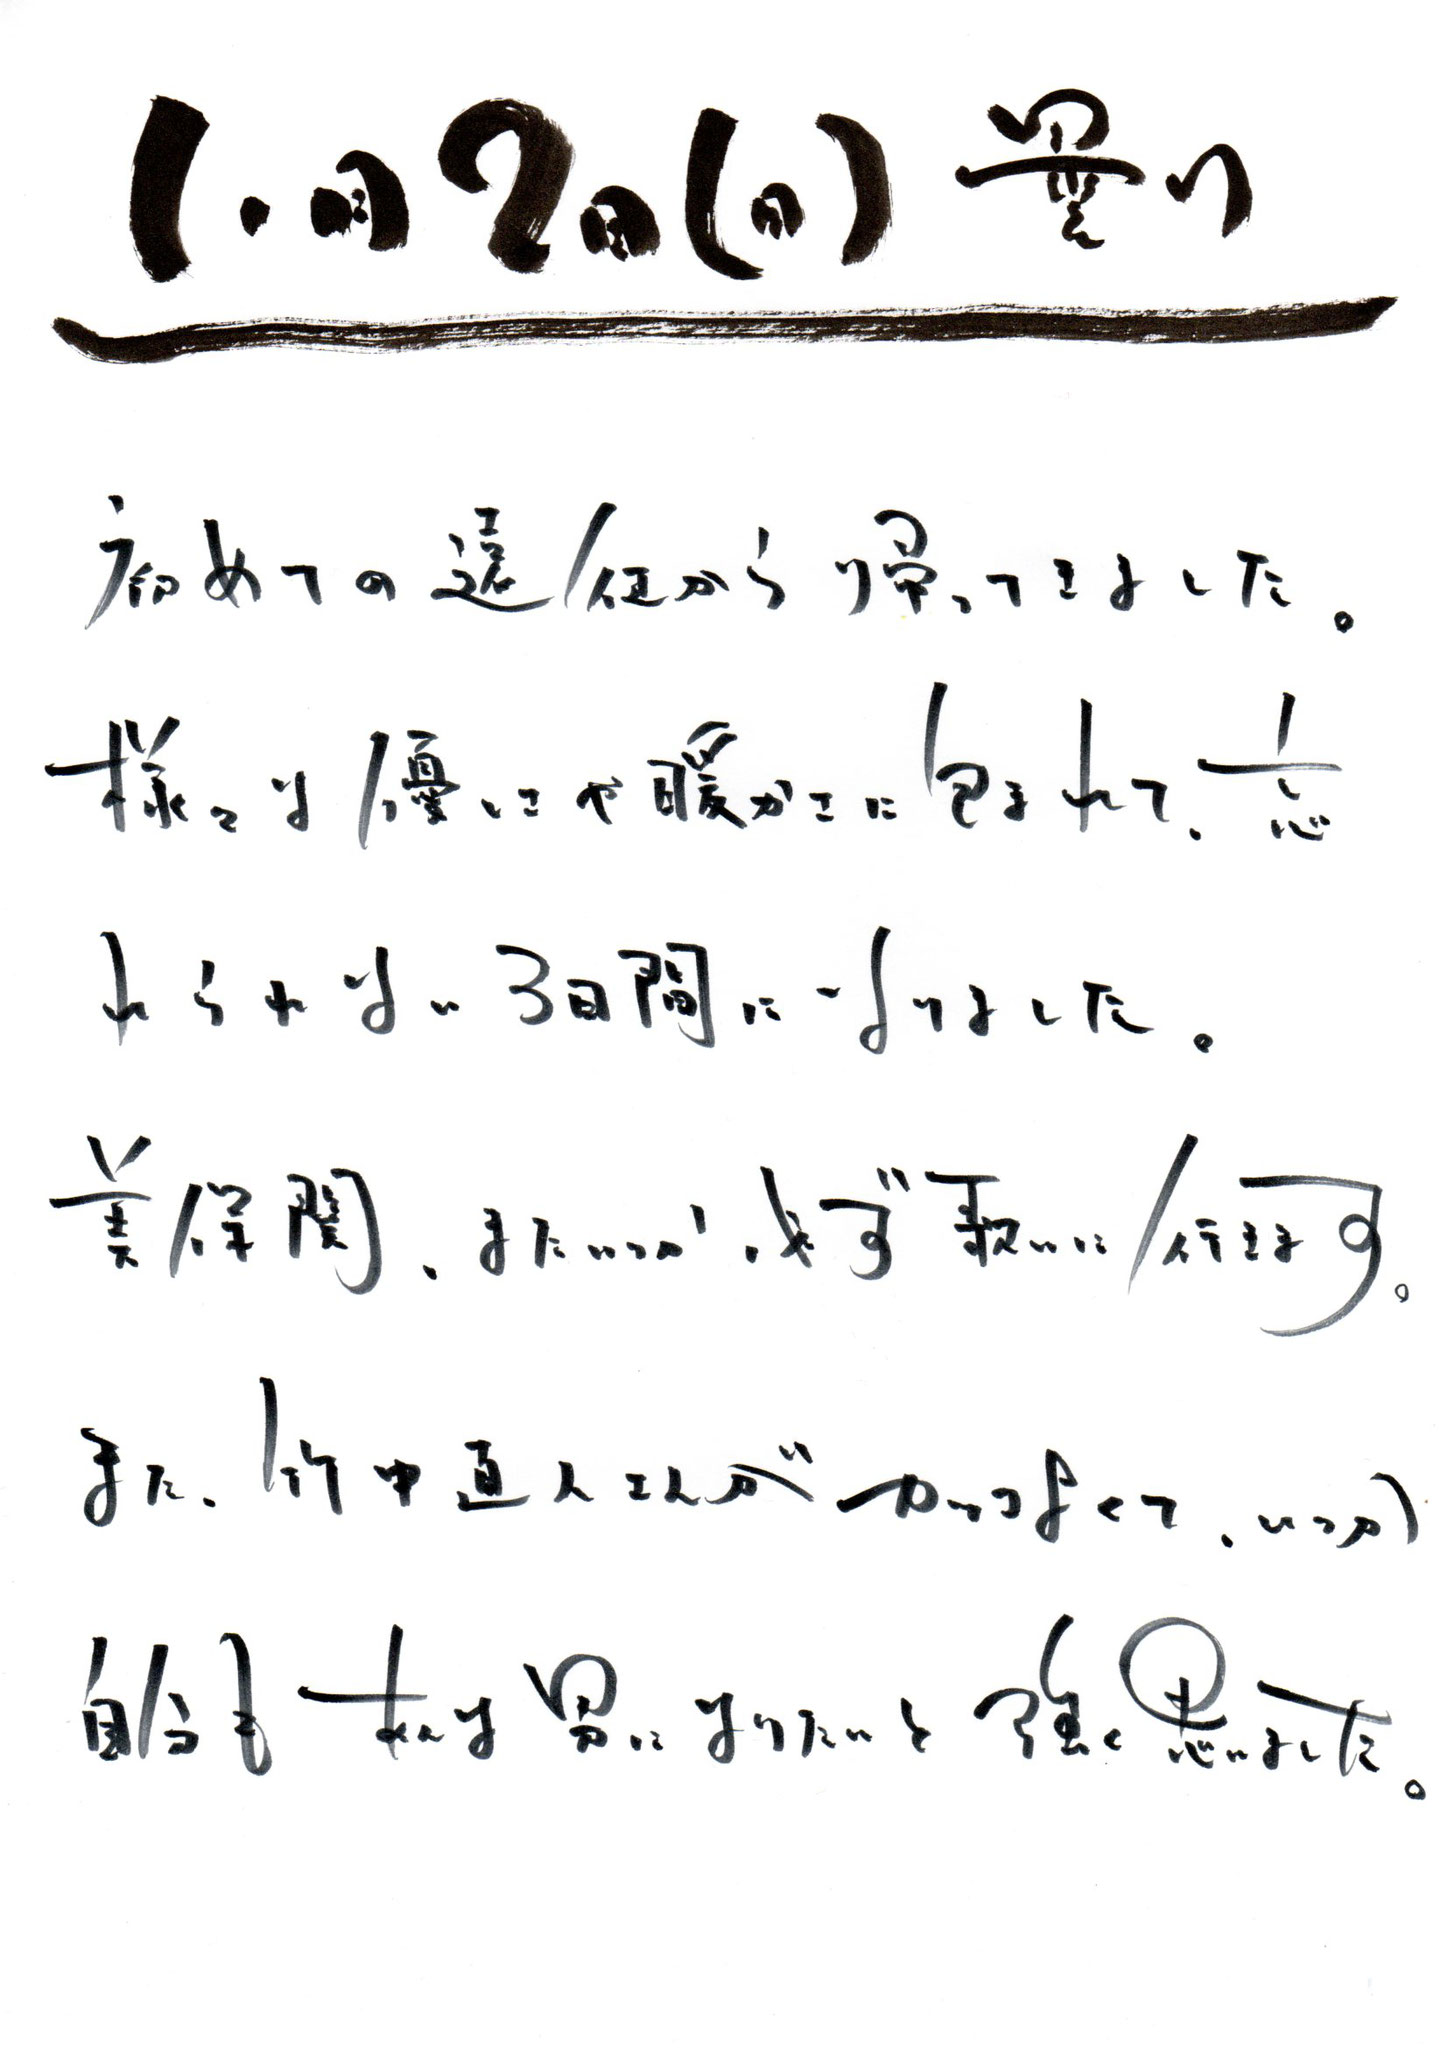 1月2日(日)曇り
初めての遠征から帰ってきました。
様々な優しさや暖かさに包まれて、忘
れられない3日間になりました。
美保関、またいつか必ず歌いに行きます。
また、竹中直人さんがカッコよくて、いつか
自分もあんな男になりたいと強く思いました。